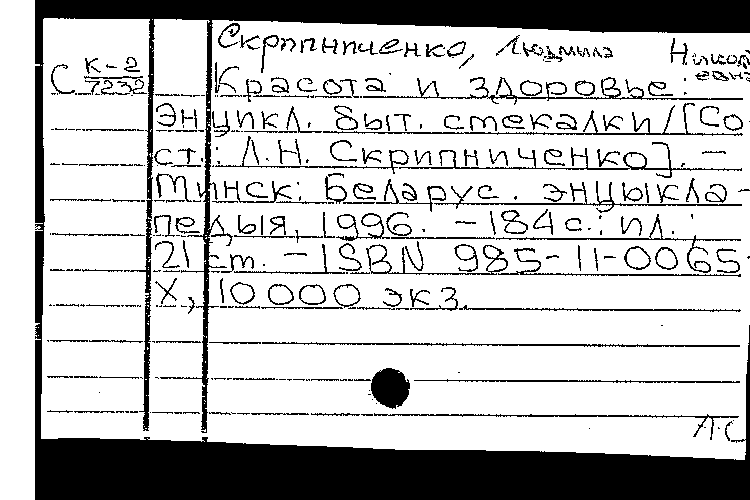 Скрипниченко, Людмила Никола-
евна
С К-2
7232
Красота и здоровье:
Энцикл. быт. стекалки/[Со-
ст.: Л.Н. Скрипниченко]. —
Минск: Беларус. энцыкла-
педыя, 1996. — 184 с.: ил.;
21 ст. — ISBN 985-11-0065-
X, 10 000 экз.
Л.С